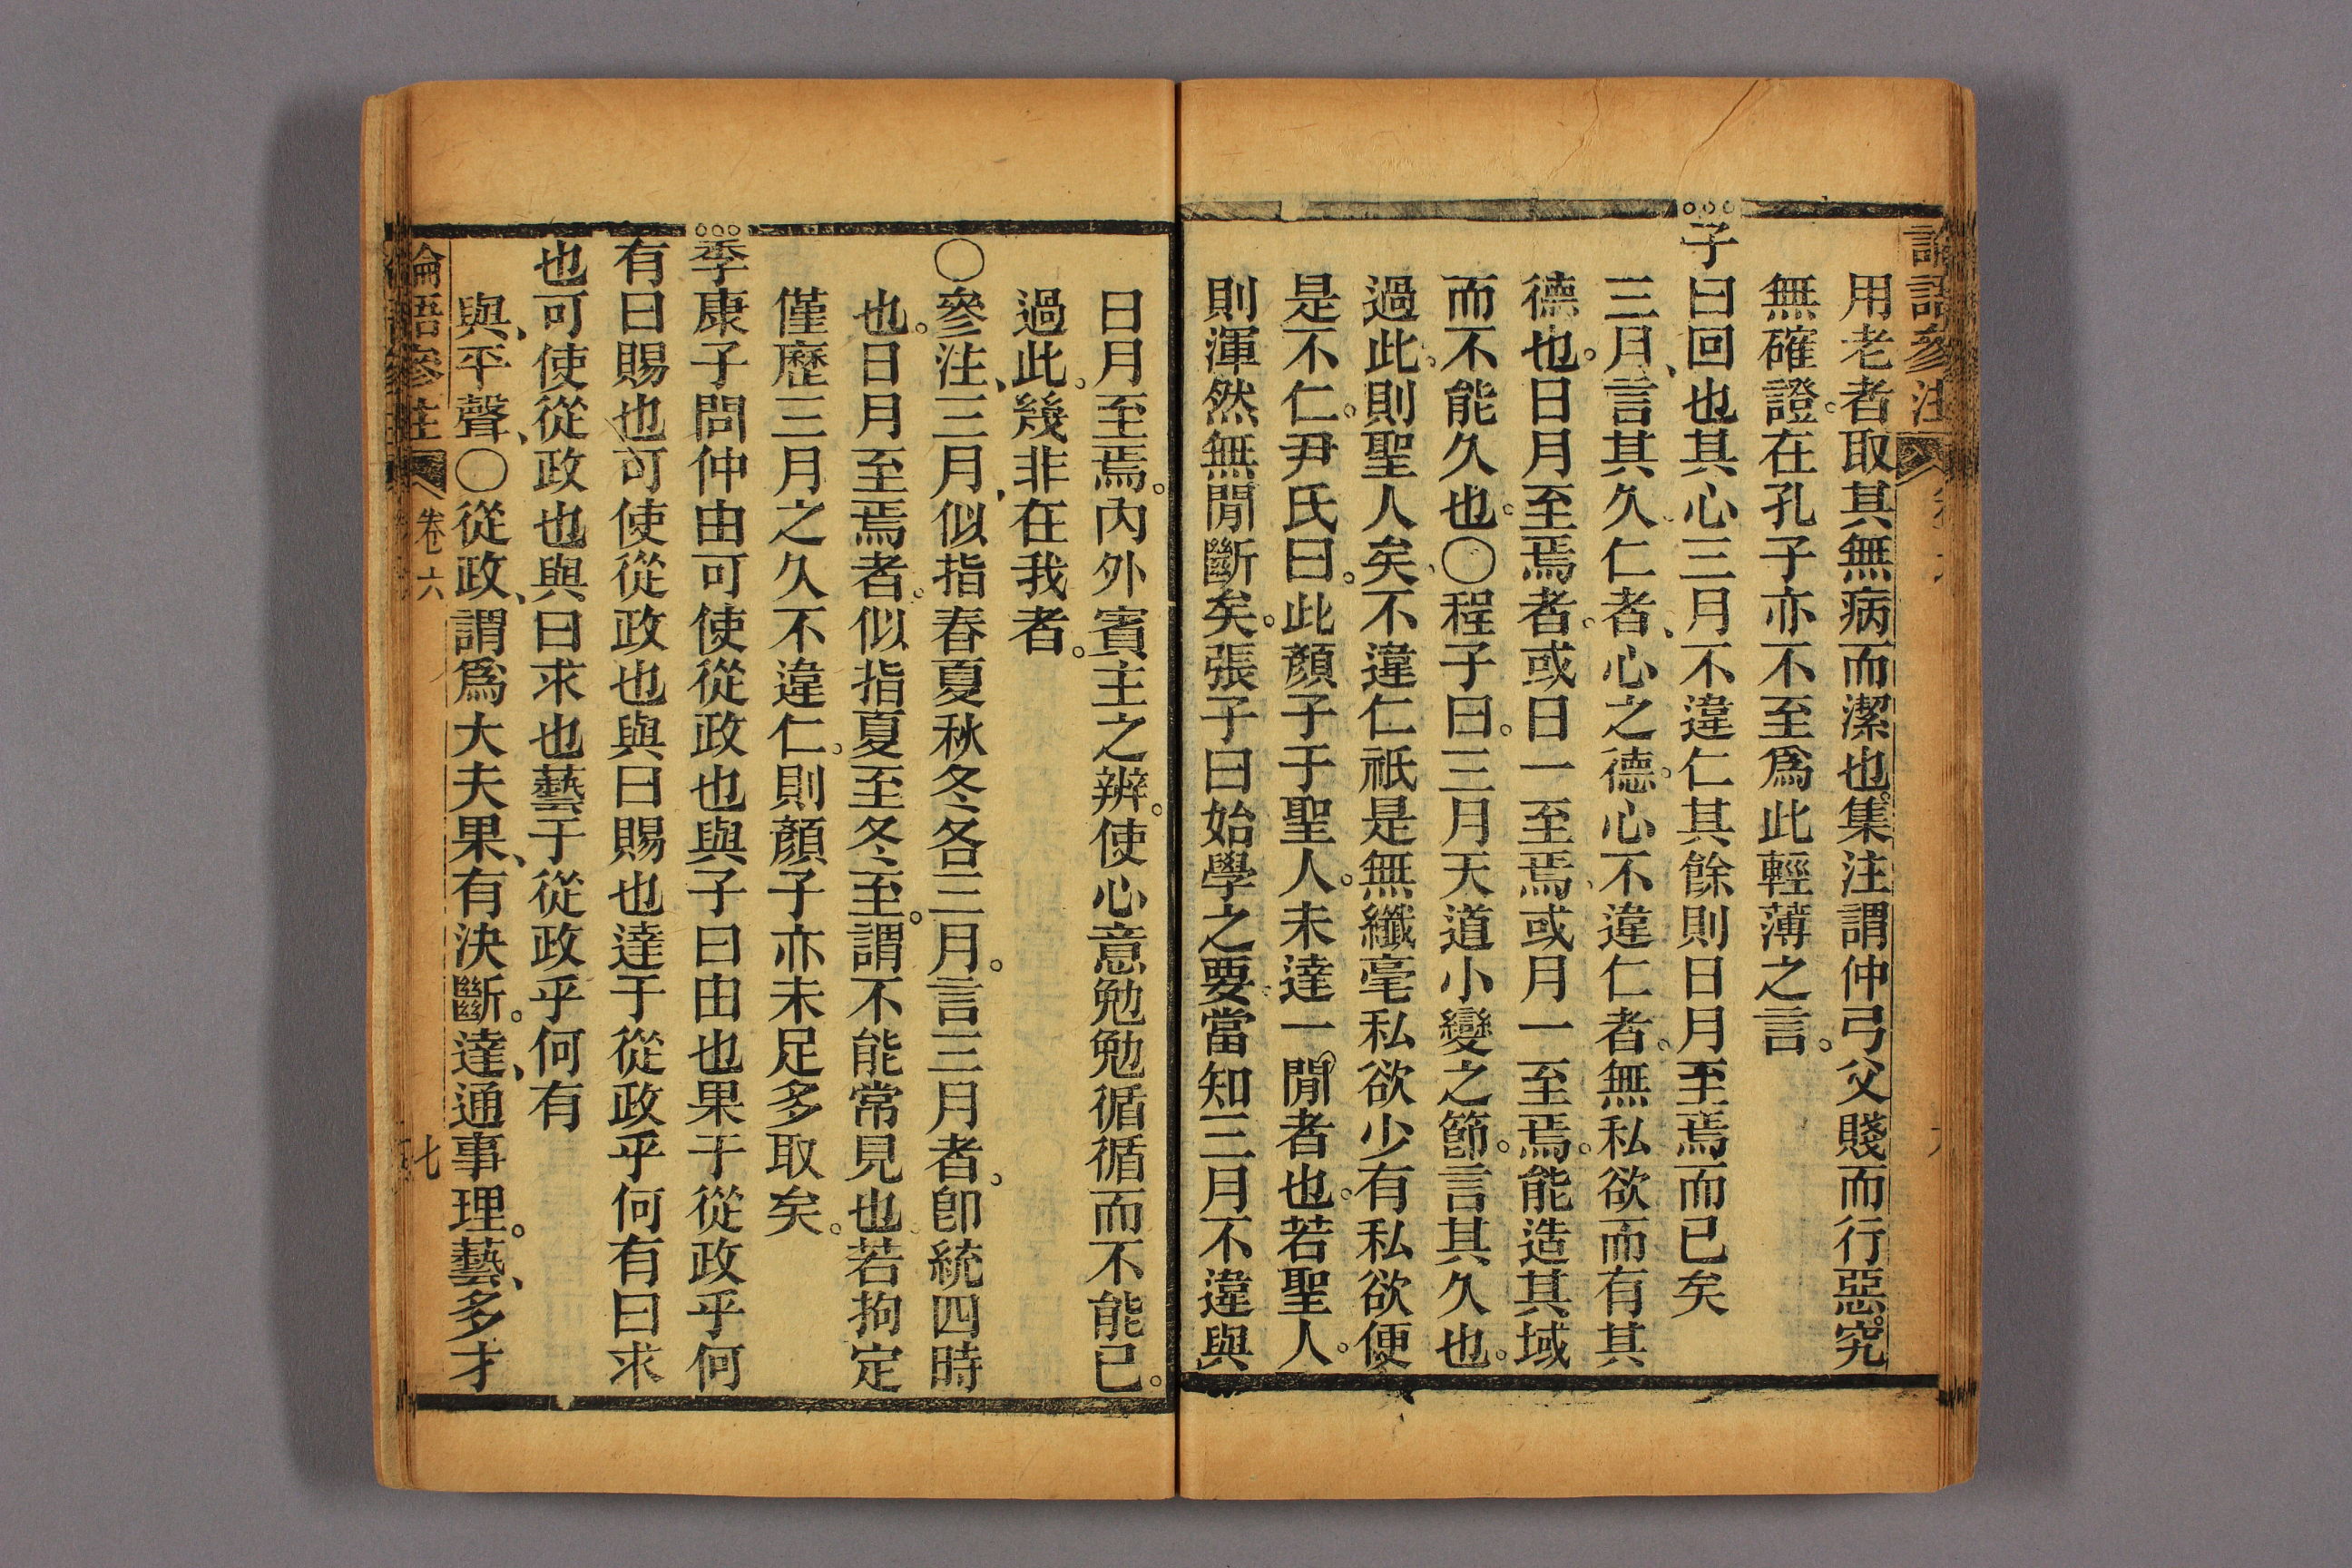 論語參注
用老者取其無病而潔也。集注謂仲弓父賤而行惡。究
無確證。在孔子亦不至爲此輕薄之言。
子曰回也其心三月不違仁其餘則日月至焉而已矣
三月、言其久仁者、心之德。心不違仁者。無私欲而有其
德也。日月至焉者。或日一至焉、或月一至焉。能造其域
而不能久也。〇程子曰。三月天道小變之節。言其久也。
過此。則聖人矣、不違仁祇是無纖毫私欲少有私欲便
是不仁。尹氏曰。此顏子于聖人。未達一閒者也。若聖人。
則渾然無閒斷矣。張子曰始學之要。當知三月不違與
日月至焉。內外賓主之辨。使心意勉勉循循而不能已。
過此。幾非在我者。
〇參注、三月、似指春夏秋冬各三月。言三月者。卽統四時
也。日月至焉者。似指夏至冬至。謂不能常見也若拘定
僅歷三月之久不違仁。則顏子亦未足多取矣。
季康子問仲由可使從政也與子曰由也果于從政乎何
有曰賜也可使從政也與曰賜也達于從政乎何有曰求
也可使從政也與曰求也藝于從政乎何有
與、平聲、〇從政、謂爲大夫果、有決斷。達、通事理。藝、多才
論語參注 卷六 七